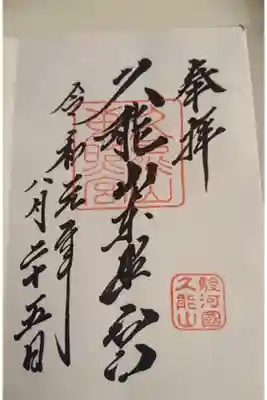 奉拝
久能山東照宮
令和元年
八月二十五日
駿河國
久能山